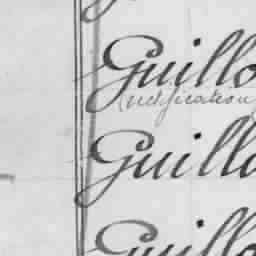 Guillo
(rectification
Guillo
Guillo